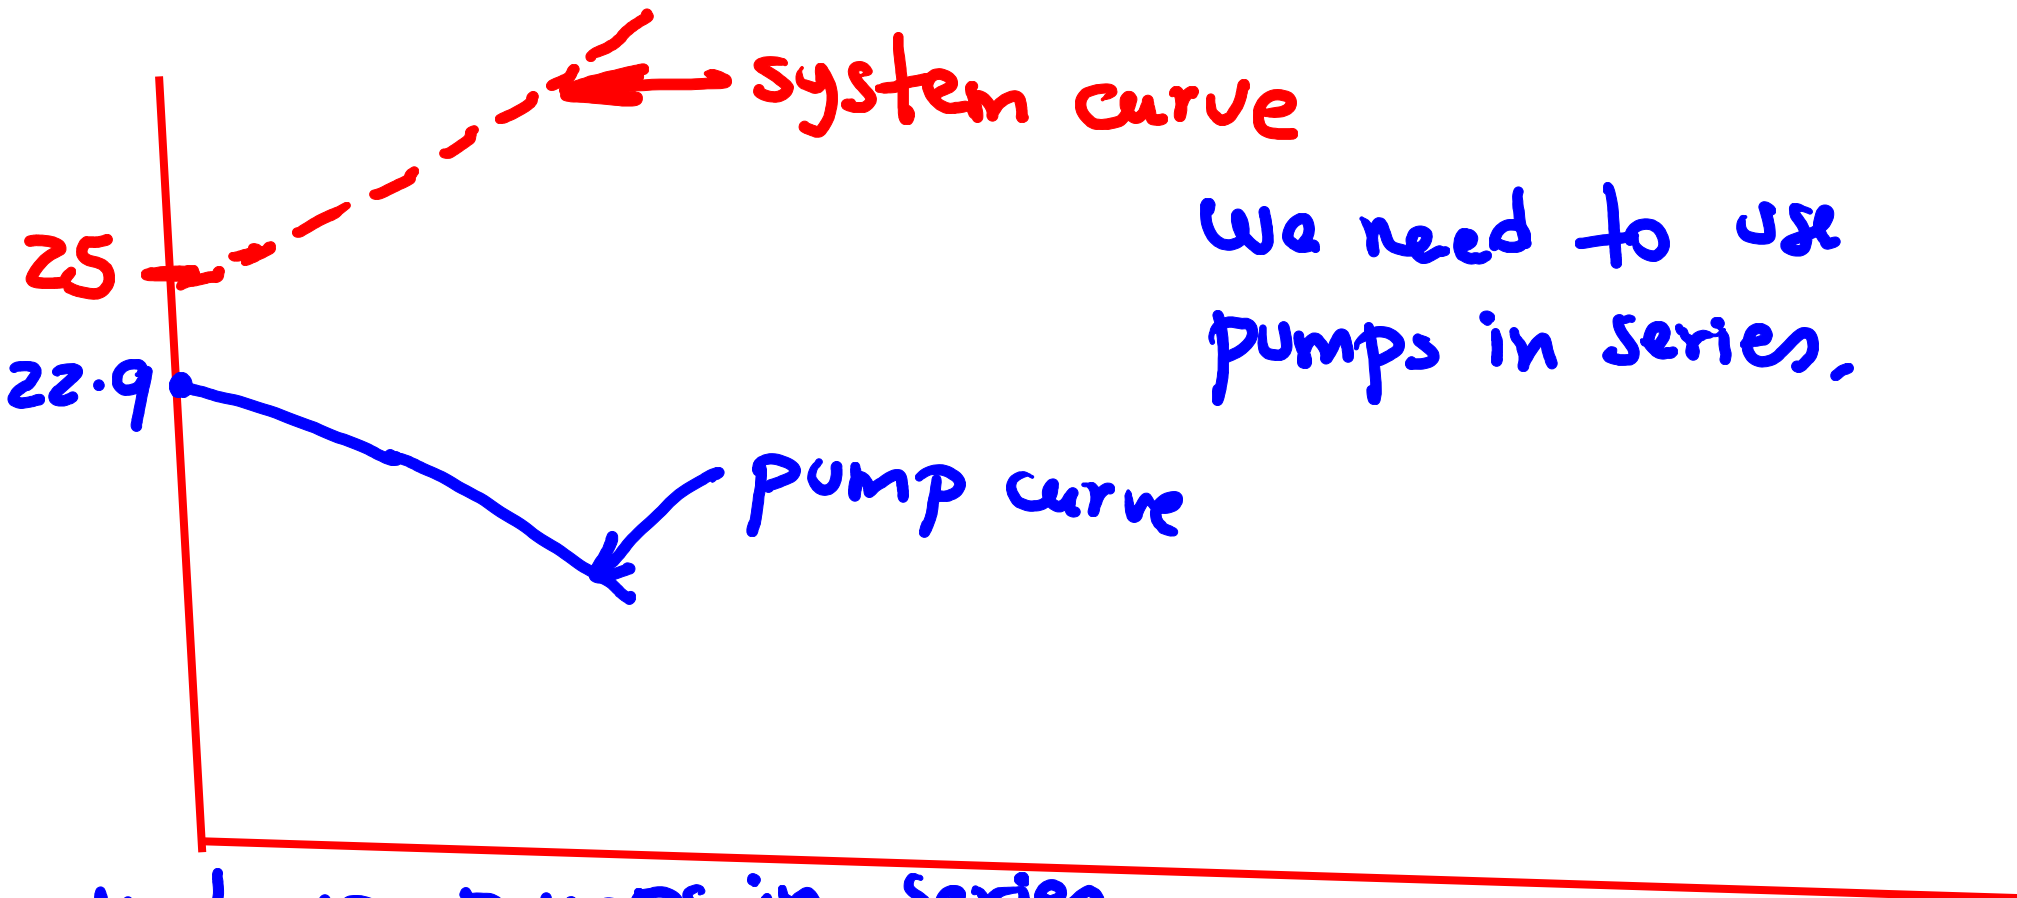 system curve
We need to use
25
pumps in series.
22.9
pump curve
pumps in series